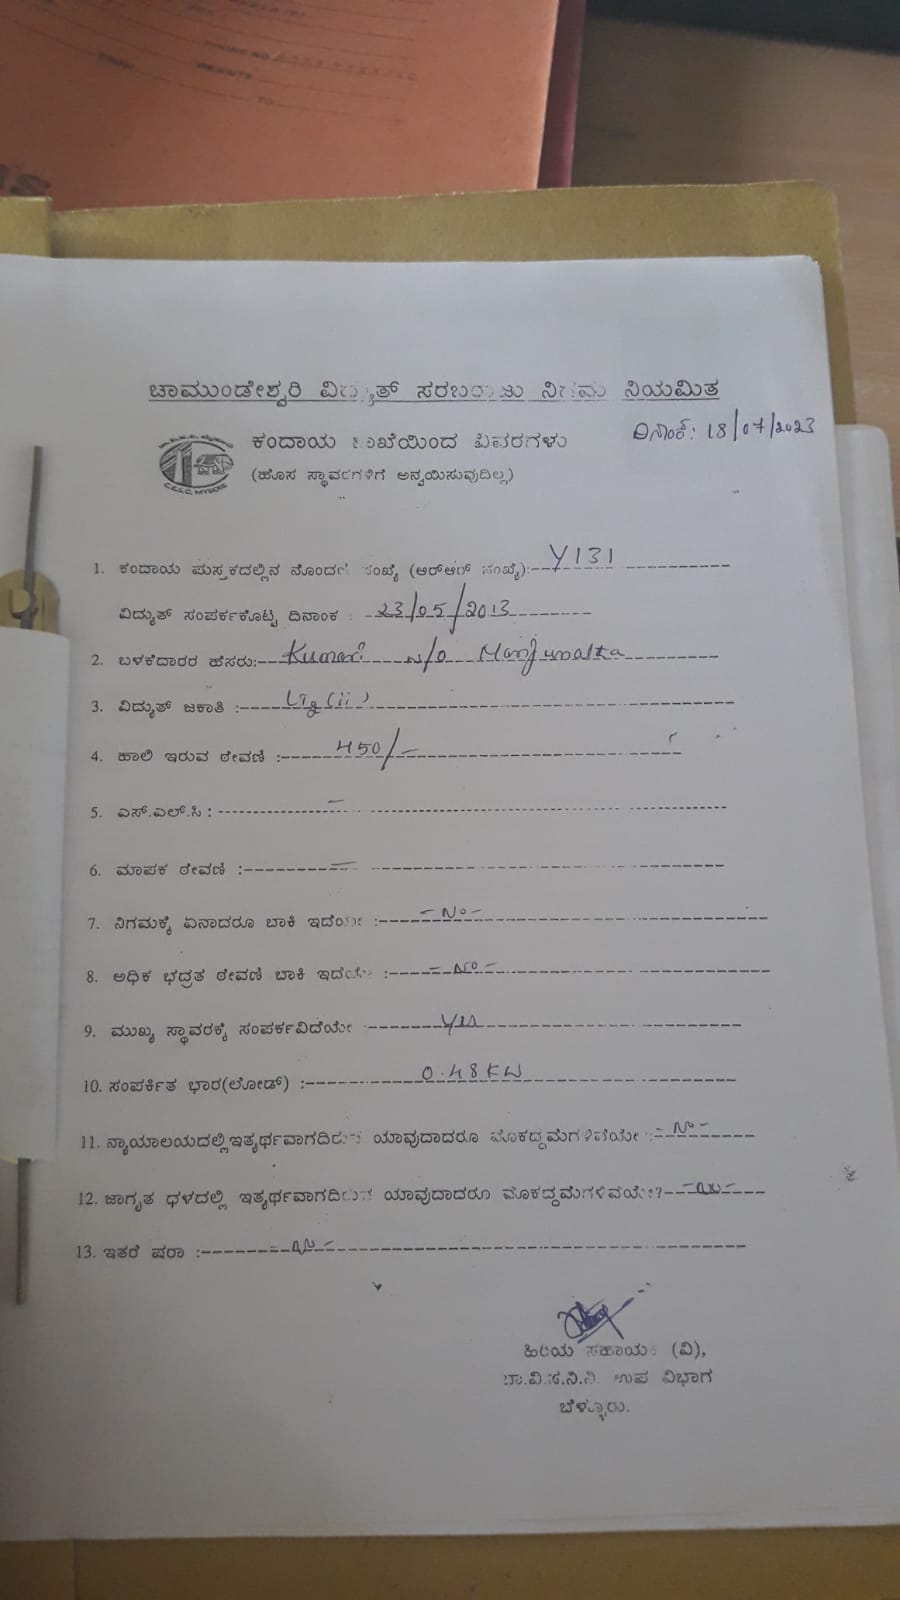 ಚಾಮುಂಡೇಶ್ವರಿ ವಿದ್ಯುತ್ ಸರಬರಾಜು ನಿಗಮ ನಿಯಮಿತ
ಕಂದಾಯ ಶಾಖೆಯಿಂದ ವಿವರಗಳು
ದಿನಾಂಕ: 18/07/2023
(ಹೊಸ ಸ್ಥಾವರಗಳಿಗೆ ಅನ್ವಯಿಸುವುದಿಲ್ಲ)
C.E.S.C. MYSORE
1. ಕಂದಾಯ ಪುಸ್ತಕದಲ್ಲಿನ ನೊಂದಣಿ ಸಂಖ್ಯೆ (ಆರ್‌ಆರ್ ಸಂಖ್ಯೆ):- Y131
ವಿದ್ಯುತ್ ಸಂಪರ್ಕಕೊಟ್ಟ ದಿನಾಂಕ : 23/05/2013
2. ಬಳಕೆದಾರರ ಹೆಸರು:- w/o
3. ವಿದ್ಯುತ್ ಜಕಾತಿ :-
4. ಹಾಲಿ ಇರುವ ಠೇವಣಿ :- 450/-
5. ಎಸ್.ಎಲ್.ಸಿ : -
6. ಮಾಪಕ ಠೇವಣಿ :-
7. ನಿಗಮಕ್ಕೆ ಏನಾದರೂ ಬಾಕಿ ಇದೆಯೇ :- -No-
8. ಅಧಿಕ ಭದ್ರತ ಠೇವಣಿ ಬಾಕಿ ಇದೆಯೇ :- -No-
9. ಮುಖ್ಯ ಸ್ಥಾವರಕ್ಕೆ ಸಂಪರ್ಕವಿದೆಯೇ :- Yes
10. ಸಂಪರ್ಕಿತ ಭಾರ(ಲೋಡ್) :- 0.48KW
11. ನ್ಯಾಯಾಲಯದಲ್ಲಿ ಇತ್ಯರ್ಥವಾಗದಿರುವ ಯಾವುದಾದರೂ ಮೊಕದ್ದಮೆಗಳಿವೆಯೇ :- No-
12. ಜಾಗೃತ ಧಳದಲ್ಲಿ ಇತ್ಯರ್ಥವಾಗದಿರುವ ಯಾವುದಾದರೂ ಮೊಕದ್ದಮೆಗಳಿವೆಯೇ?- -No-
13. ಇತರೆ ಷರಾ :- -No-
ಹಿರಿಯ ಸಹಾಯಕ (ವಿ),
ಚಾ.ವಿ.ಸ.ನಿ.ನಿ. ಉಪ ವಿಭಾಗ
ಬೆಳ್ಳೂರು.